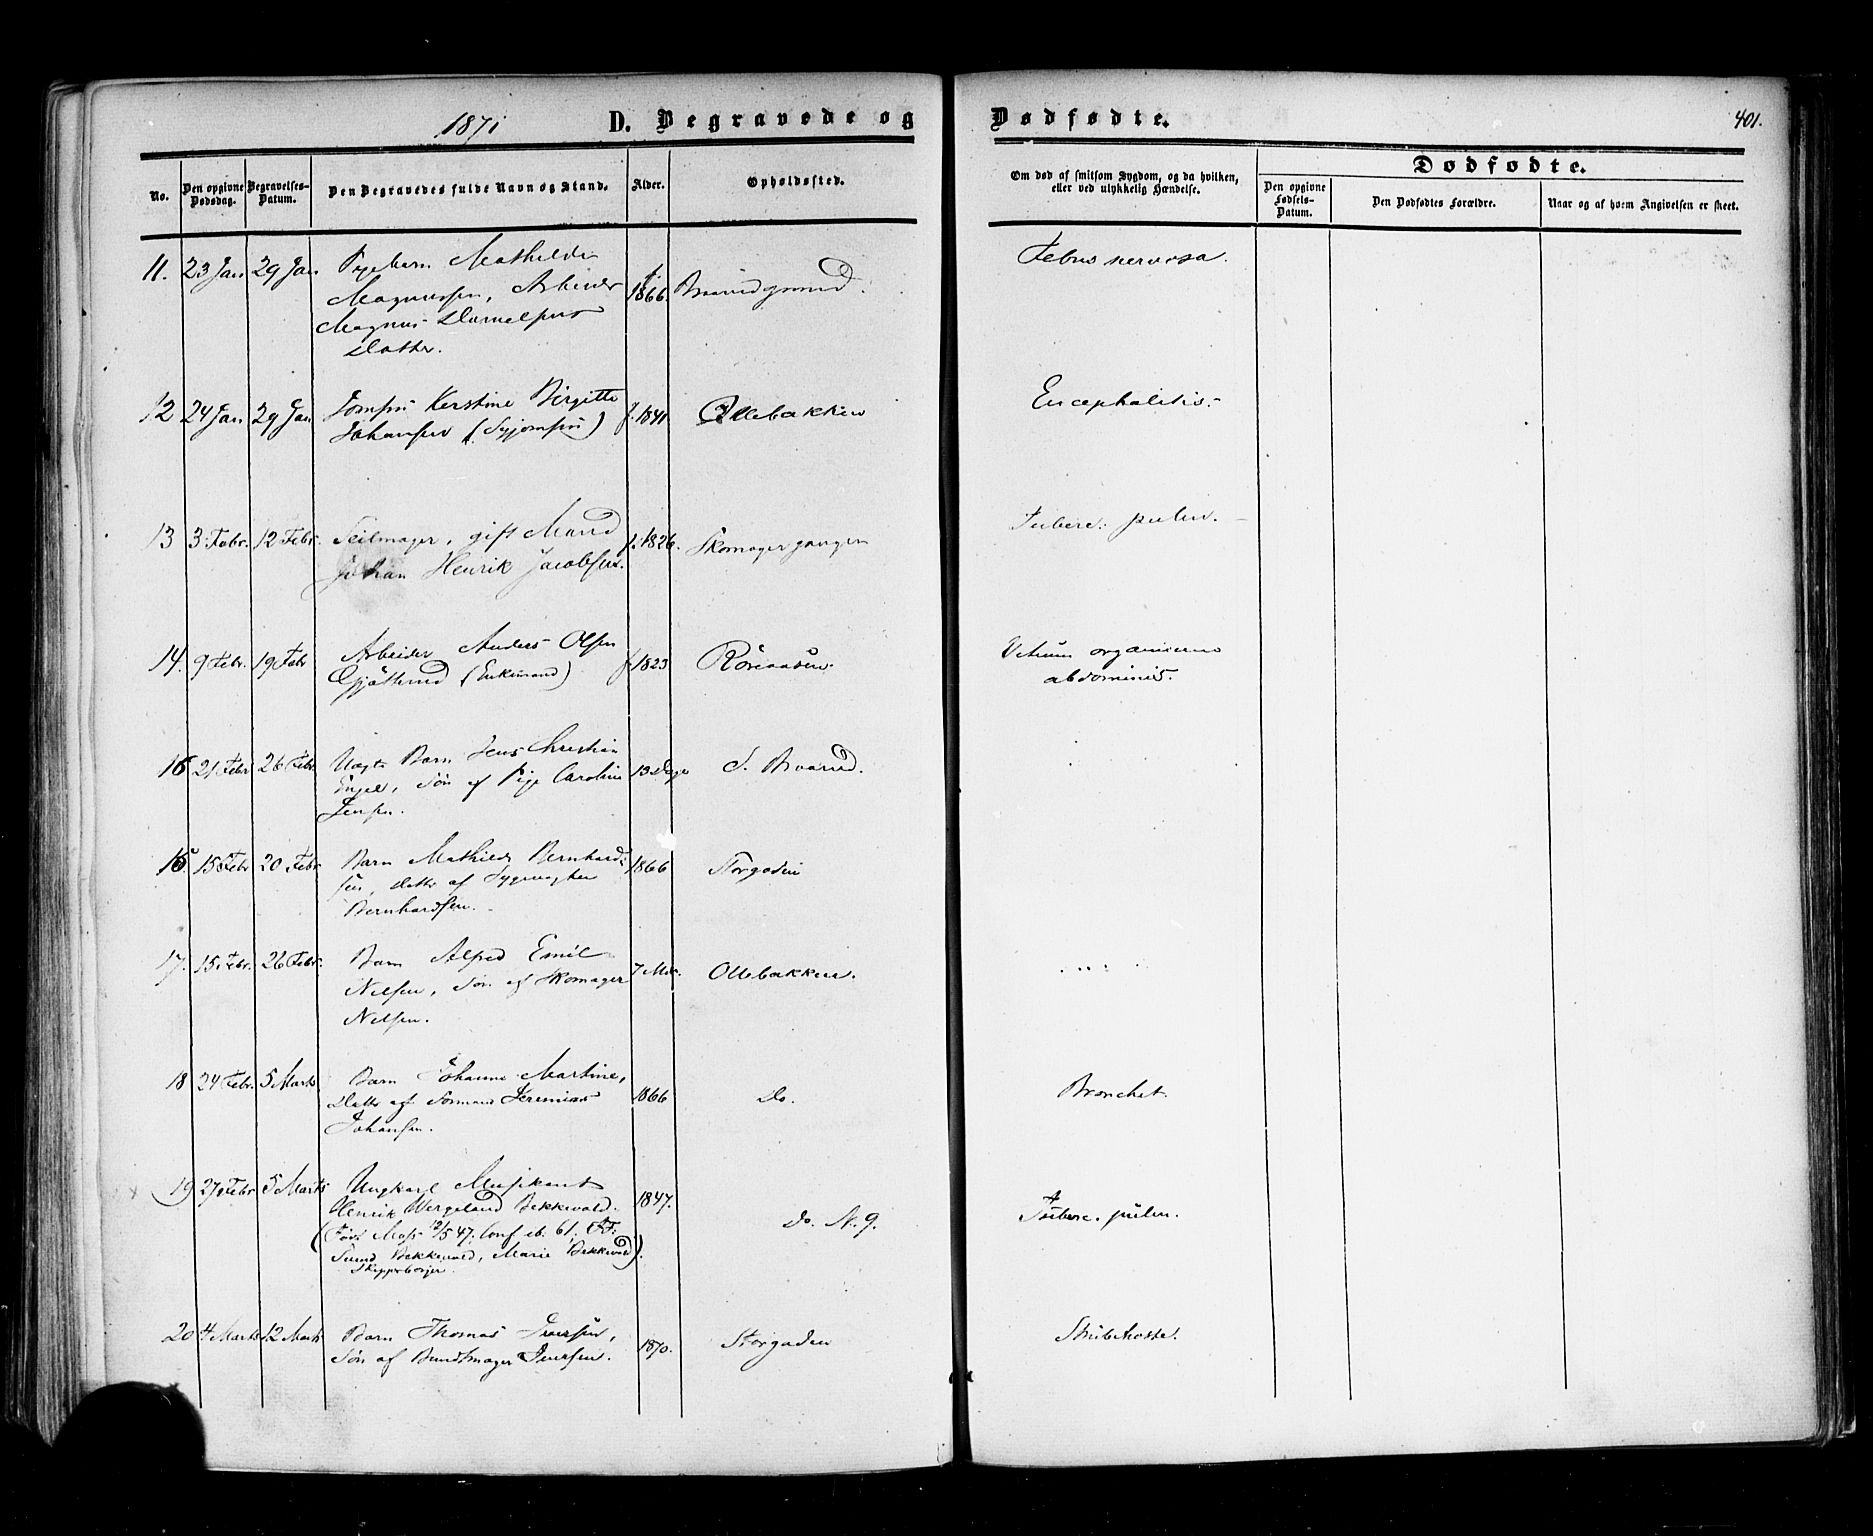 1871 D. Begravede og Dødfødte. 401.
No. Den opgivne Dødsdag. Begravelses-Datum. Den Begravedes fulde Navn og Stand. Alder. Opholdssted. Om død af smitsom Sygdom, og da hvilken, eller ved ulykkelig Hændelse. Dødfødte.
Den opgivne Fødsels-Datum. Den Dødfødtes Forældre. Naar og af hvem Angivelsen er skeet.
11. 23 Jan 29 Jan Pigebarn Mathilde f. 1866. Febris nervosa.
Magnussen, Arbeider
Magnus Danielsens
Datter.
12 24 Jan 29 Jan Jomfru Kerstine Birgitte f. 1841 Ollebakken Encephalitis.
Johansen (Syjomfru)
13 3 Febr. 12 Febr. Seilmager, gift Mand f. 1826. Skomagergangen Tuberc. pulm.
Johan Henrik Jacobsen.
14. 9 Febr. 19 Febr Arbeider Anders Olsen f. 1823 Vitium organicum
(Enkemand) abdominis.
16 21 Febr 26 Febr. Uægte Barn Jens Christian 13 Dage
Engel, Søn af Pige Caroline
Jensen.
15. 15 Febr 20 Febr Barn Mathilde Bernhard- 1866 Storgaden
sen, Datter af
Bernhardsen.
17. 15 Febr. 26 Febr. Barn Alfred Emil 7 Mdr. Ollebakken.
Nilsen, Søn af Skomager
Nilsen.
18 24 Febr. 5 Marts Barn Johanne Martine, 1866 Do. Bronchit.
Datter af Sømand Jeremias
Johansen.
19 27 Febr 5 Marts Ungkarl Musikant 1847. Do. N. 9. Tuberc. pulm.
Henrik Wergeland Bekkevold.
(Født Moss 12/5 47. Conf. ib. 61. FF:
Bekkevold, Marie Bekkevold).
Skipperborger.
20 4 Marts 12 Marts Barn Thomas Iversen, 1870. Storgaden Strubehoste.
Søn af Bundtmager Iversen.